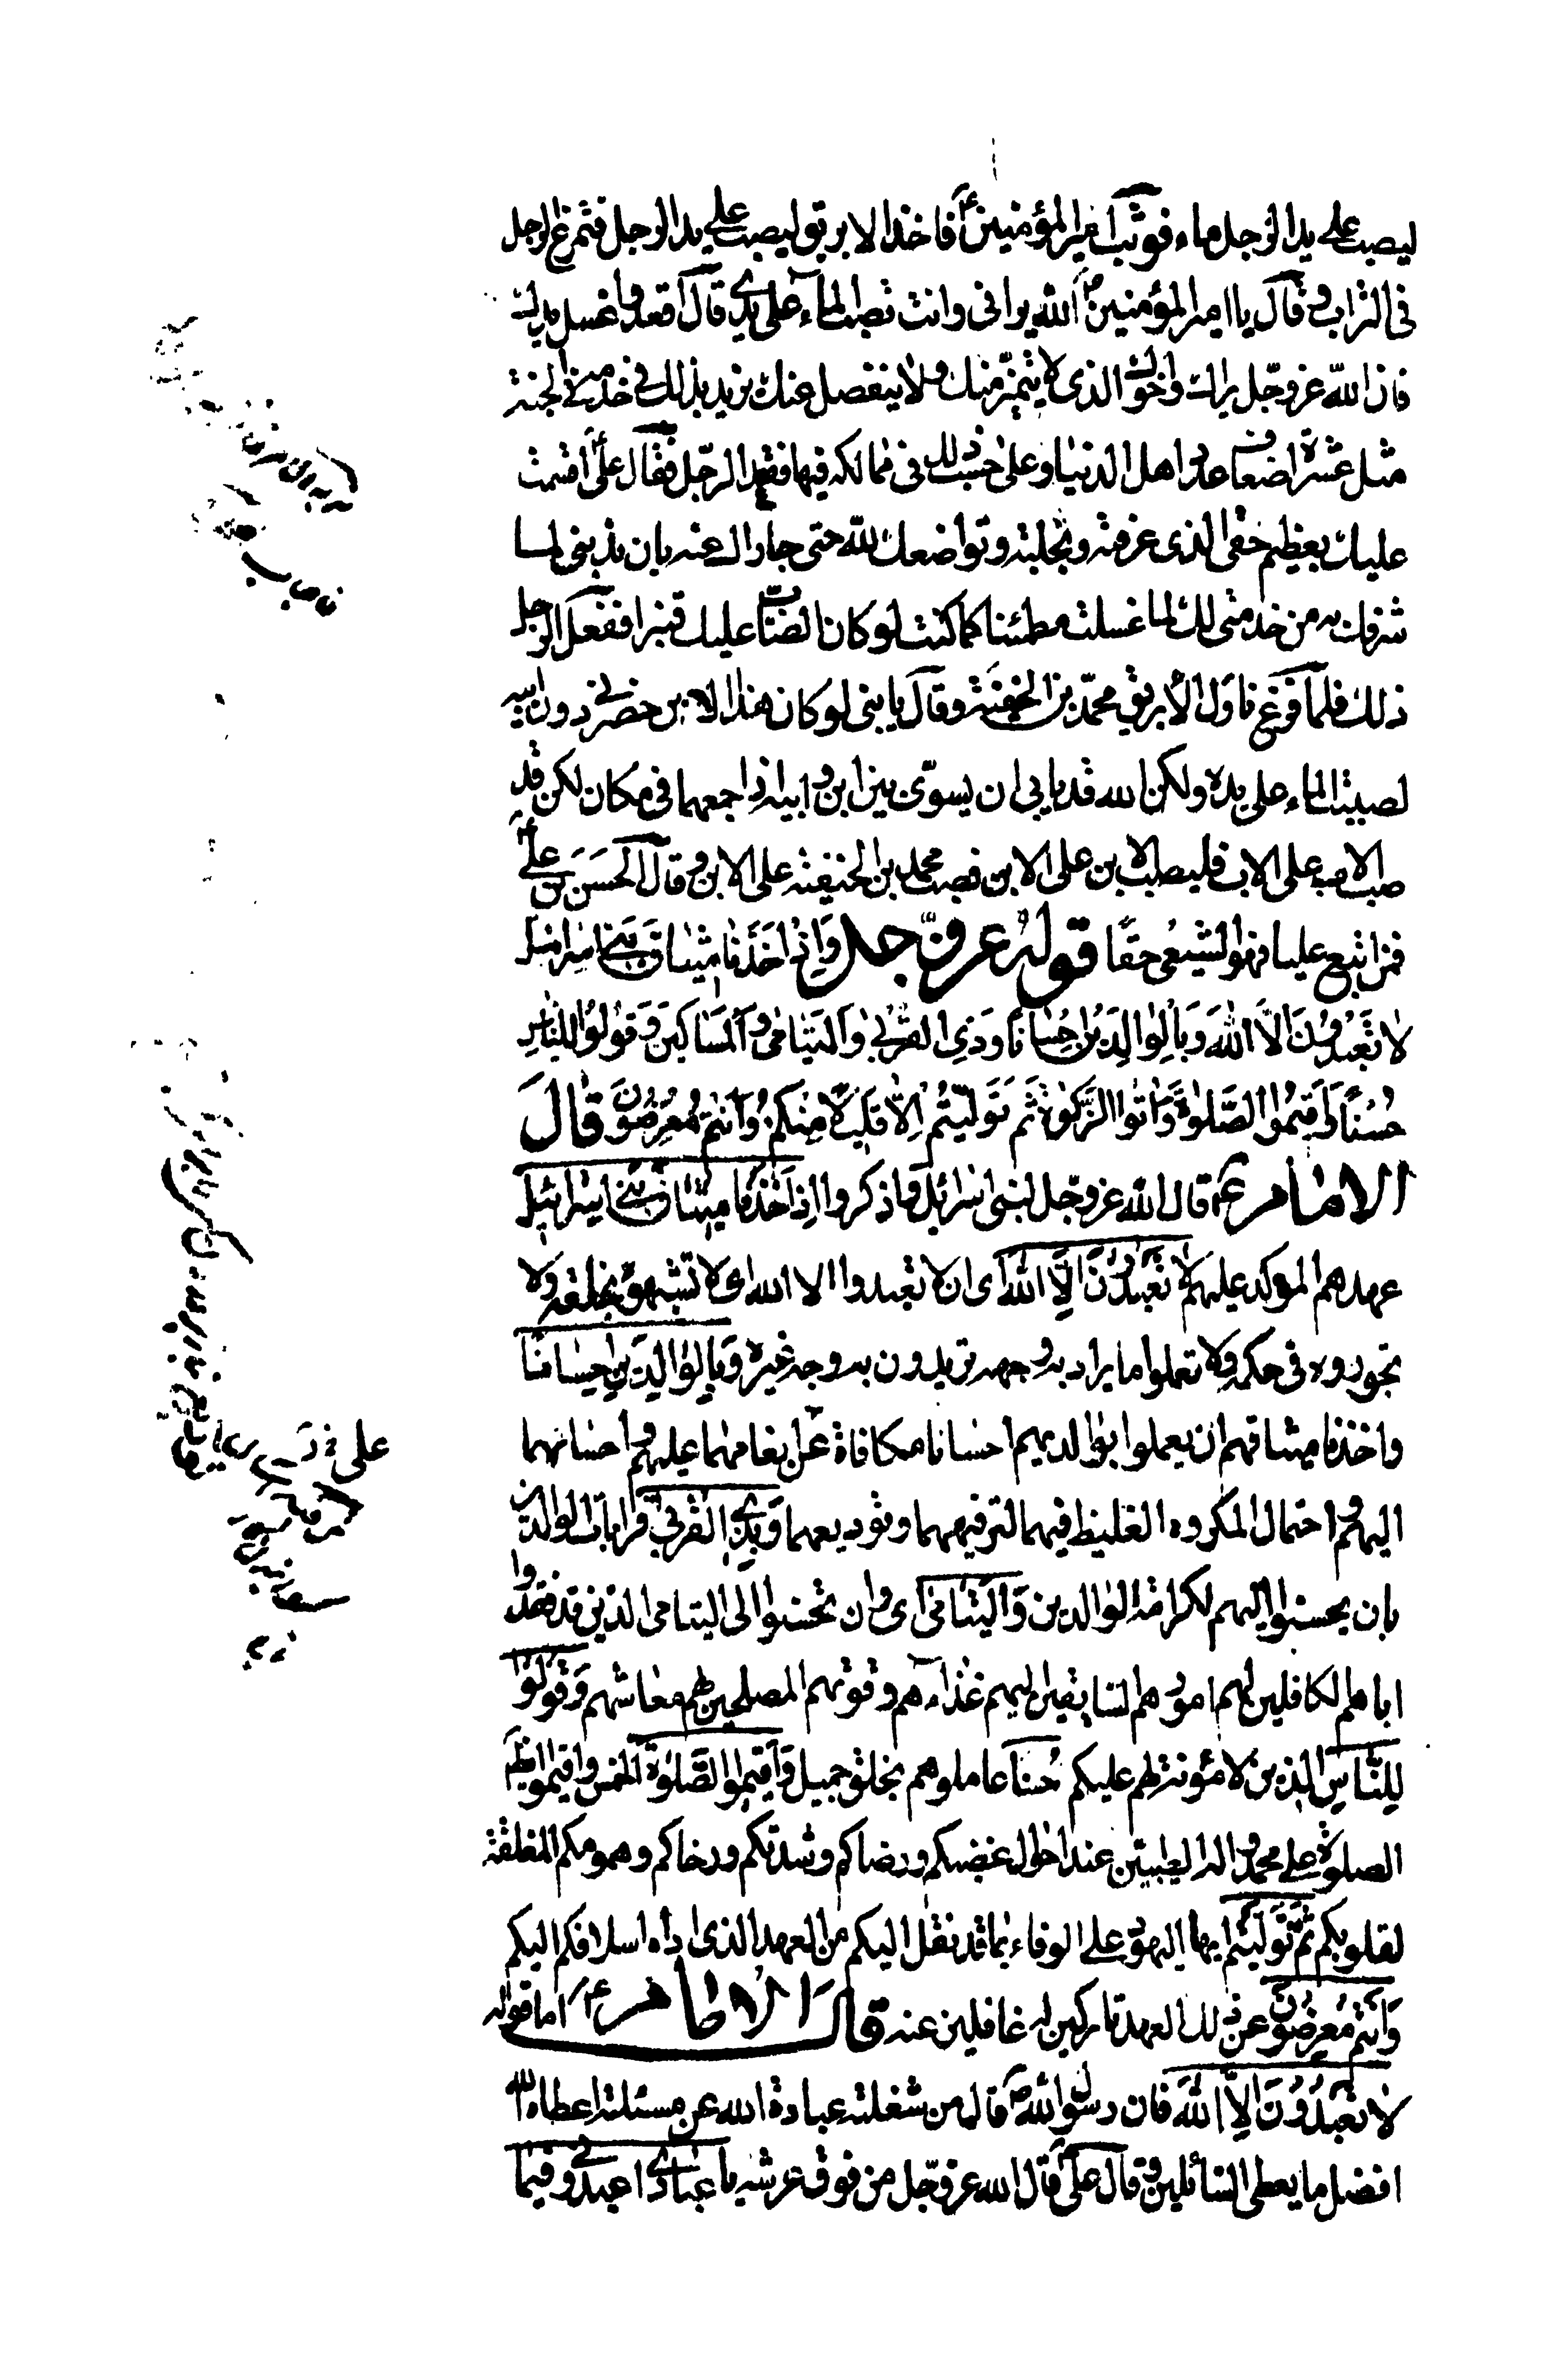 ليصب على يد الرجل ماء فوثب امير المؤمنين ع فاخذ الابريق ليصب على يد الرجل فتمرغ الرجل
فى التراب وقال يا امير المؤمنين الله يرانى وانت تصب الماء على يدى قال اقعد واغسل يدك
فان الله عز وجل يراك واخوك الذى لا يتميز منك ولا ينفصل عنك يزيد بذلك فى خدمته فى الجنة
مثل عشرة اضعاف عدد اهل الدنيا وعلى حسب ذلك فى ممالكه فيها فقعد الرجل فقال على اقسمت
عليك بعظيم حقى الذى عرفته وبجلته وتواضعك لله حتى جازاك عنه بان ندبنى لما
شرفك به من خدمتى لك لما غسلت مطمئنا كما كنت لو كان الصاب عليك قنبرا ففعل الرجل
ذلك فلما فرغ ناول الابريق محمد بن الحنفية وقال يا بنى لو كان هذا الابن حضرنى دون ابيه
لصببت الماء على يده ولكن الله قد يابى ان يسوى بين ابن وابيه اذا جمعهما فى مكان لكن قد
صب الاب على الاب فليصب الابن على الابن فصب محمد بن الحنفية على الابن وقال الحسن بن على
فمن اتبع عليا فهو الشيعى حقا قوله عز وجل وَاِذْ اَخَذْنا ميثاقَ بَنى اِسرائيل
لا تَعْبُدُونَ اِلَّا اللهَ وَبِالْوالِدَيْنِ اِحْسانًا وَذِى الْقُرْبى وَالْيَتامى وَالْمَساكينَ وَقُولُوا لِلنّاسِ
حُسْنًا وَاَقيمُوا الصَّلوةَ وَاتُوا الزَّكوةَ ثُمَّ تَوَلَّيْتُمْ اِلّا قَليلًا مِنْكُمْ وَاَنْتُمْ مُعْرِضُونَ قالَ
الامام ع قال الله عز وجل لبنى اسرائيل واذكروا اِذْ اَخَذْنا ميثاقَ بَنى اِسرائيل
عهدهم المؤكد عليهم لا تَعْبُدُونَ اِلَّا اللهَ اى ان لا تعبدوا الا الله اى لا تشبهوه بخلقه ولا
تجوروه فى حكمه ولا تعملوا ما يراد به وجهه تريدون به وجه غيره وَبِالْوالِدَيْنِ اِحْسانًا
واخذنا ميثاقهم ان يعملوا بوالديهم احسانا مكافاة عن انعامهما عليهم واحسانهما
اليهم واحتمال المكروه الغليظ فيهما لترفيههما وتوديعهما وَذِى الْقُرْبى قرابات الوالدين
بان يحسنوا اليهم لكرامة الوالدين وَالْيَتامى اى وان تحسنوا الى اليتامى الذين قد فقدوا
اباهم الكافلين لهم امورهم السابقين اليهم غذاءهم وقوتهم المصلحين لهم معاشهم وَقُولُوا
لِلنّاسِ الذين لا مؤنة لهم عليكم حُسْنًا عاملوهم بخلق جميل وَاَقيمُوا الصَّلوةَ الخمس واقيموا ايضا
الصلوة على محمد واله الطيبين عند احوال غضبكم ورضاكم وشدتكم ورخاكم وهمومكم المغلقة
لقلوبكم ثُمَّ تَوَلَّيْتُمْ ايها اليهود على الوفاء بما قد نقل اليكم من العهد الذى اداه اسلافكم اليكم
وَاَنْتُمْ مُعْرِضُونَ عن ذلك العهد تاركين له غافلين عنه قالَ الامام ع اما قوله
لا تَعْبُدُونَ اِلَّا اللهَ فان رسول الله ص قال من شغلته عبادة الله عن مسئلته اعطاه الله
افضل ما يعطى السائلين وقال على قال الله عز وجل من فوق عرشه يا عبادى اعبدونى فيما